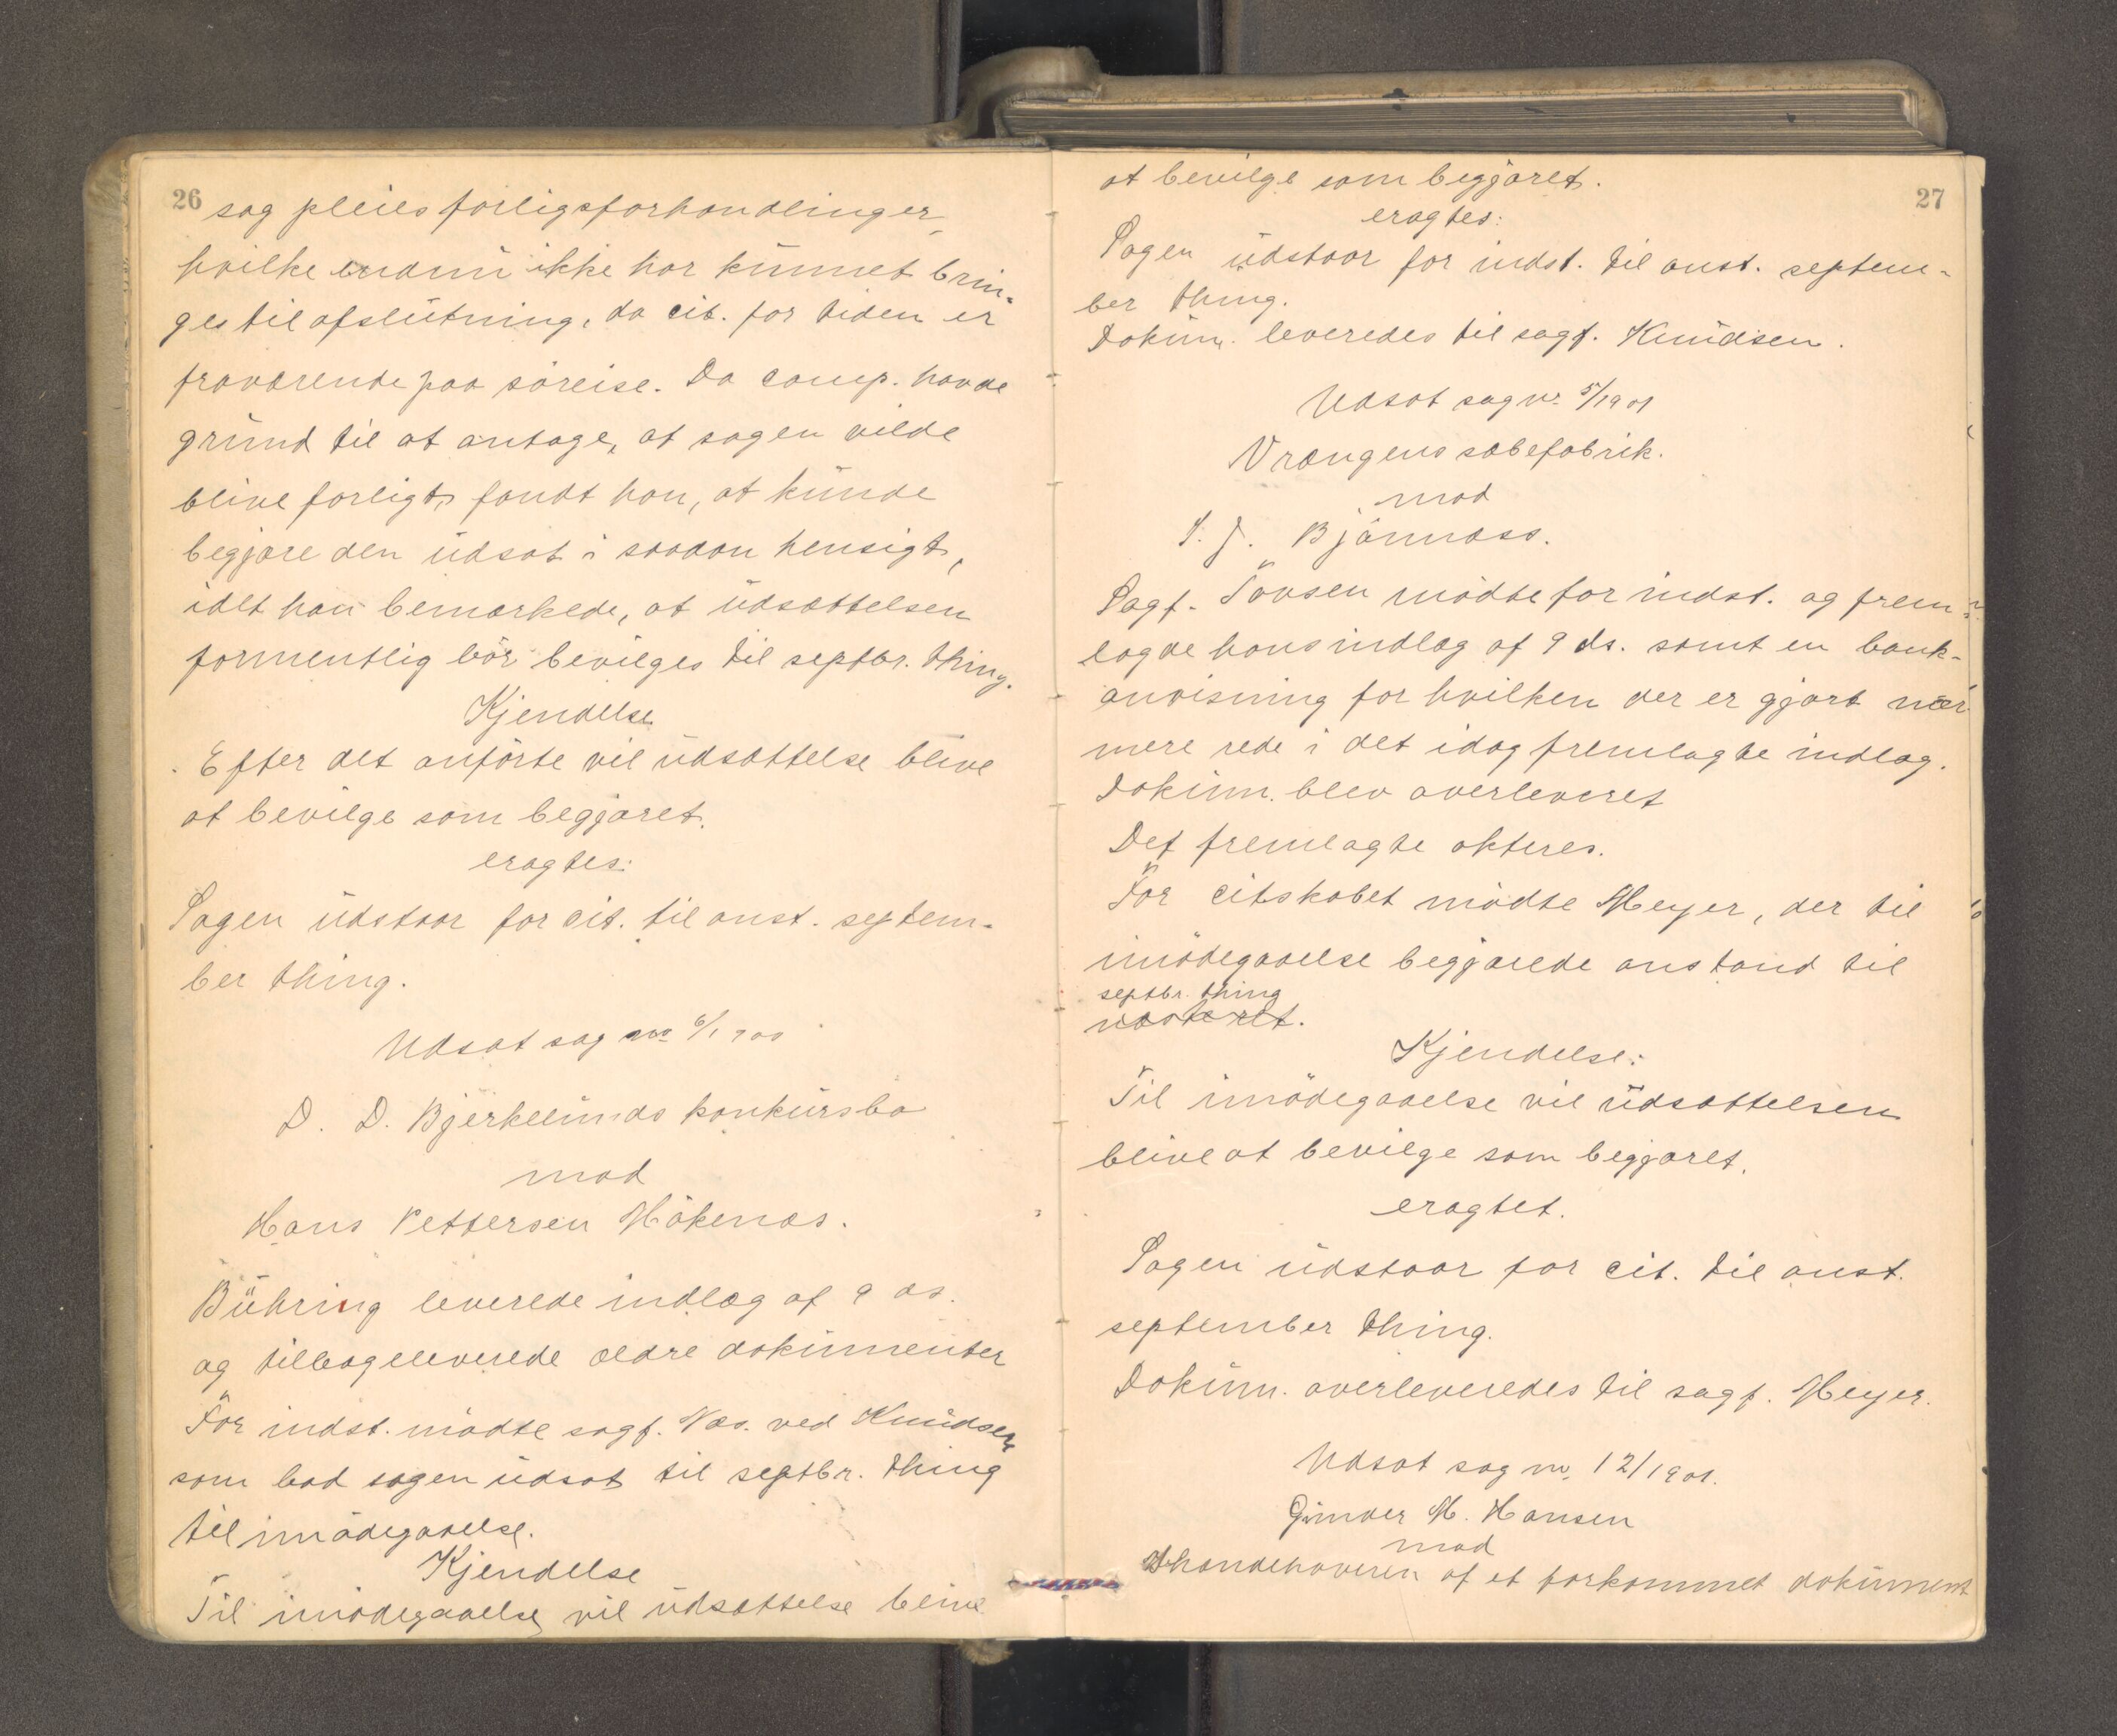 26
sag pleies forligsforhandlinger,
hvilke endnu ikke har kunnet brin-
ges til afslutning, da cit. for tiden er
fraværende paa søreise. Da comp. havde
grund til at antage, at sagen vilde
blive forligt, fandt han, at kunde
begjære den udsat i saadan hensigt,
idet han bemærkede, at udsættelsen
formentlig bör bevilges til septbr. thing.
Kjendelse
Efter det anförte vil udsættelse blive
at bevilge som begjæret.
eragtes:
Sagen udstaar for cit. til anst. septem-
ber thing.
Udsat sag no 6/1900
D. D. Bjerkelunds konkursbo
mod
Hans Pettersen Høkenæs.
Bühring leverede indlæg af 9 ds.
og tilbageleverede ældre dokumenter
For indst. mödte sagf. Næs. ved Knudsen
som bad sagen udsat til septbr. thing
til imödegaaelse.
Kjendelse
Til imödegaaelse vil udsættelse blive
27
at bevilge som begjæret.
eragtes:
Sagen udstaar for indst. til anst. septem-
ber thing.
Dokum. leveredes til sagf. Knudsen.
Udsat sag nr 5/1901
Vrængens sæbefabrik.
mod
I. J. Björnnæss.
Sagf. Tønsen mödte for indst. og frem-
lagde hans indlæg af 9 ds. samt en bank-
anvisning for hvilken der er gjort nær-
mere rede i det idag fremlagte indlæg.
Dokum. blev overleveret
Det fremlagte akteres.
For citskabet mödte Meyer, der til
imödegaaelse begjærede anstand til
septbr. thing
Kjendelse:
Til imödegaaelse vil udsættelsen
blive at bevilge som begjæret.
eragtet.
Sagen udstaar for cit. til anst.
september thing.
Dokum. overleveredes til sagf. Meyer.
Udsat sag nr. 12/1901.
Gunder M. Hansen
mod
Ihændehaveren af et forkommet dokument